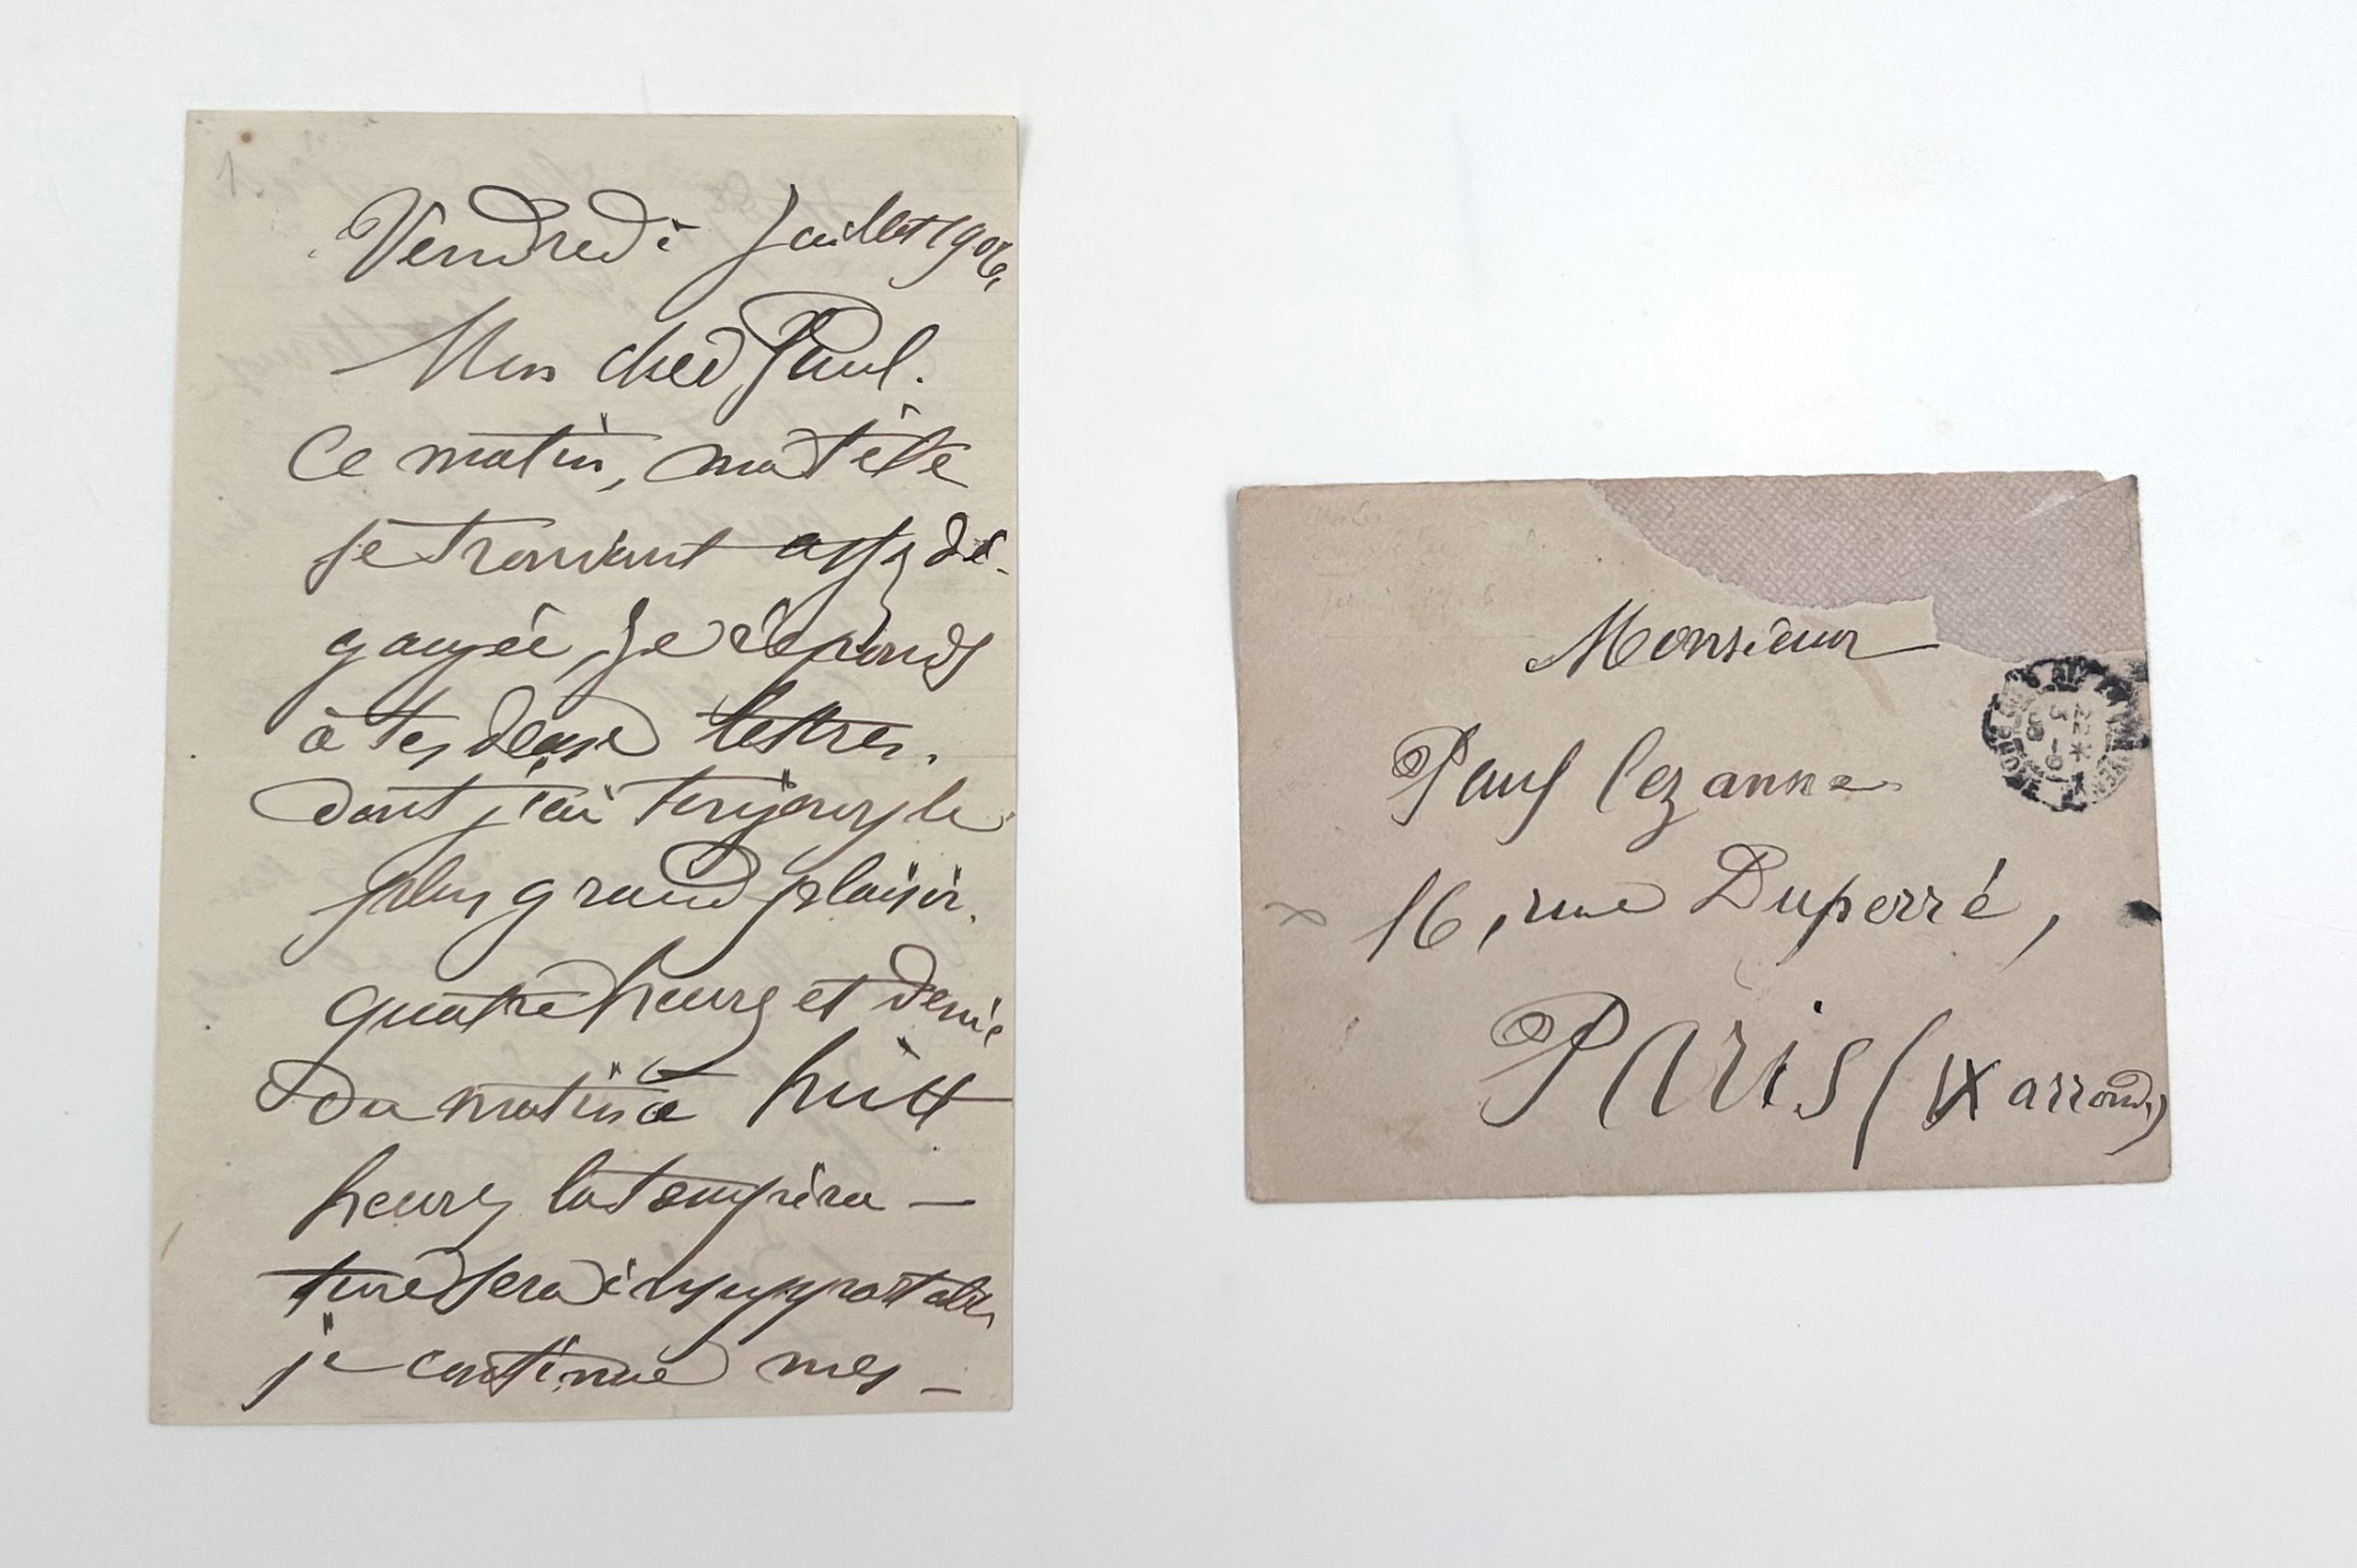 Vendredi Juillet 1906,
Mon cher Paul.
Ce matin, ma tête
se trouvant assez dé-
gagée, je réponds
à tes deux lettres.
dont j'ai toujours le
plus grand plaisir.
quatre heures et demie
du matin à huit
heures la tempéra-
ture sera insupportable,
je continue mes -
Monsieur
Paul Cezanne
16, rue Duperré,
PARIS (IX arrond.)